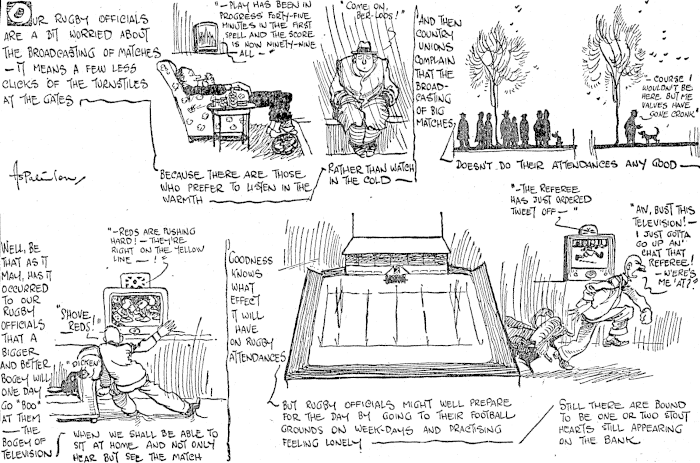 OUR RUGBY OFFICIALS
ARE A BIT WORRIED ABOUT
THE BROADCASTING OF MATCHES
— IT MEANS A FEW LESS
CLICKS OF THE TURNSTILES
AT THE GATES
"— PLAY HAS BEEN IN
PROGRESS FORTY-FIVE
MINUTES IN THE FIRST
SPELL AND THE SCORE
IS NOW NINETY-NINE
ALL —"
BECAUSE THERE ARE THOSE
WHO PREFER TO LISTEN IN THE
WARMTH
"COME ON,
BER-LOOS!"
RATHER THAN WATCH
IN THE COLD —
AND THEN
COUNTRY
UNIONS
COMPLAIN
THAT THE
BROAD-
CASTING
OF BIG
MATCHES
DOESN'T DO THEIR ATTENDANCES ANY GOOD —
"— COURSE I
WOULDN'T BE
HERE BUT ME
VALVES HAVE
GONE CRONK"
WELL, BE
THAT AS IT
MAY, HAS IT
OCCURRED
TO OUR
RUGBY
OFFICIALS
THAT A
BIGGER
AND BETTER
BOGEY WILL
ONE DAY
GO "BOO"
AT THEM
— THE
BOGEY OF
TELEVISION
"— REDS ARE PUSHING
HARD! — THEY'RE
RIGHT ON THE YELLOW
LINE — !"
"SHOVE,
REDS!"
WHEN WE SHALL BE ABLE TO
SIT AT HOME AND NOT ONLY
HEAR BUT SEE THE MATCH
GOODNESS
KNOWS
WHAT
EFFECT
IT WILL
HAVE
ON RUGBY
ATTENDANCES
BUT RUGBY OFFICIALS MIGHT WELL PREPARE
FOR THE DAY BY GOING TO THEIR FOOTBALL
GROUNDS ON WEEK-DAYS AND PRACTISING
FEELING LONELY!
"— THE REFEREE
HAS JUST ORDERED
TWEET OFF —"
"AW, BUST THIS
TELEVISION! —
I JUST GOTTA
GO UP AN'
CHAT THAT
REFEREE!
— W'ERE'S
ME 'AT?"
STILL THERE ARE BOUND
TO BE ONE OR TWO STOUT
HEARTS STILL APPEARING
ON THE BANK.